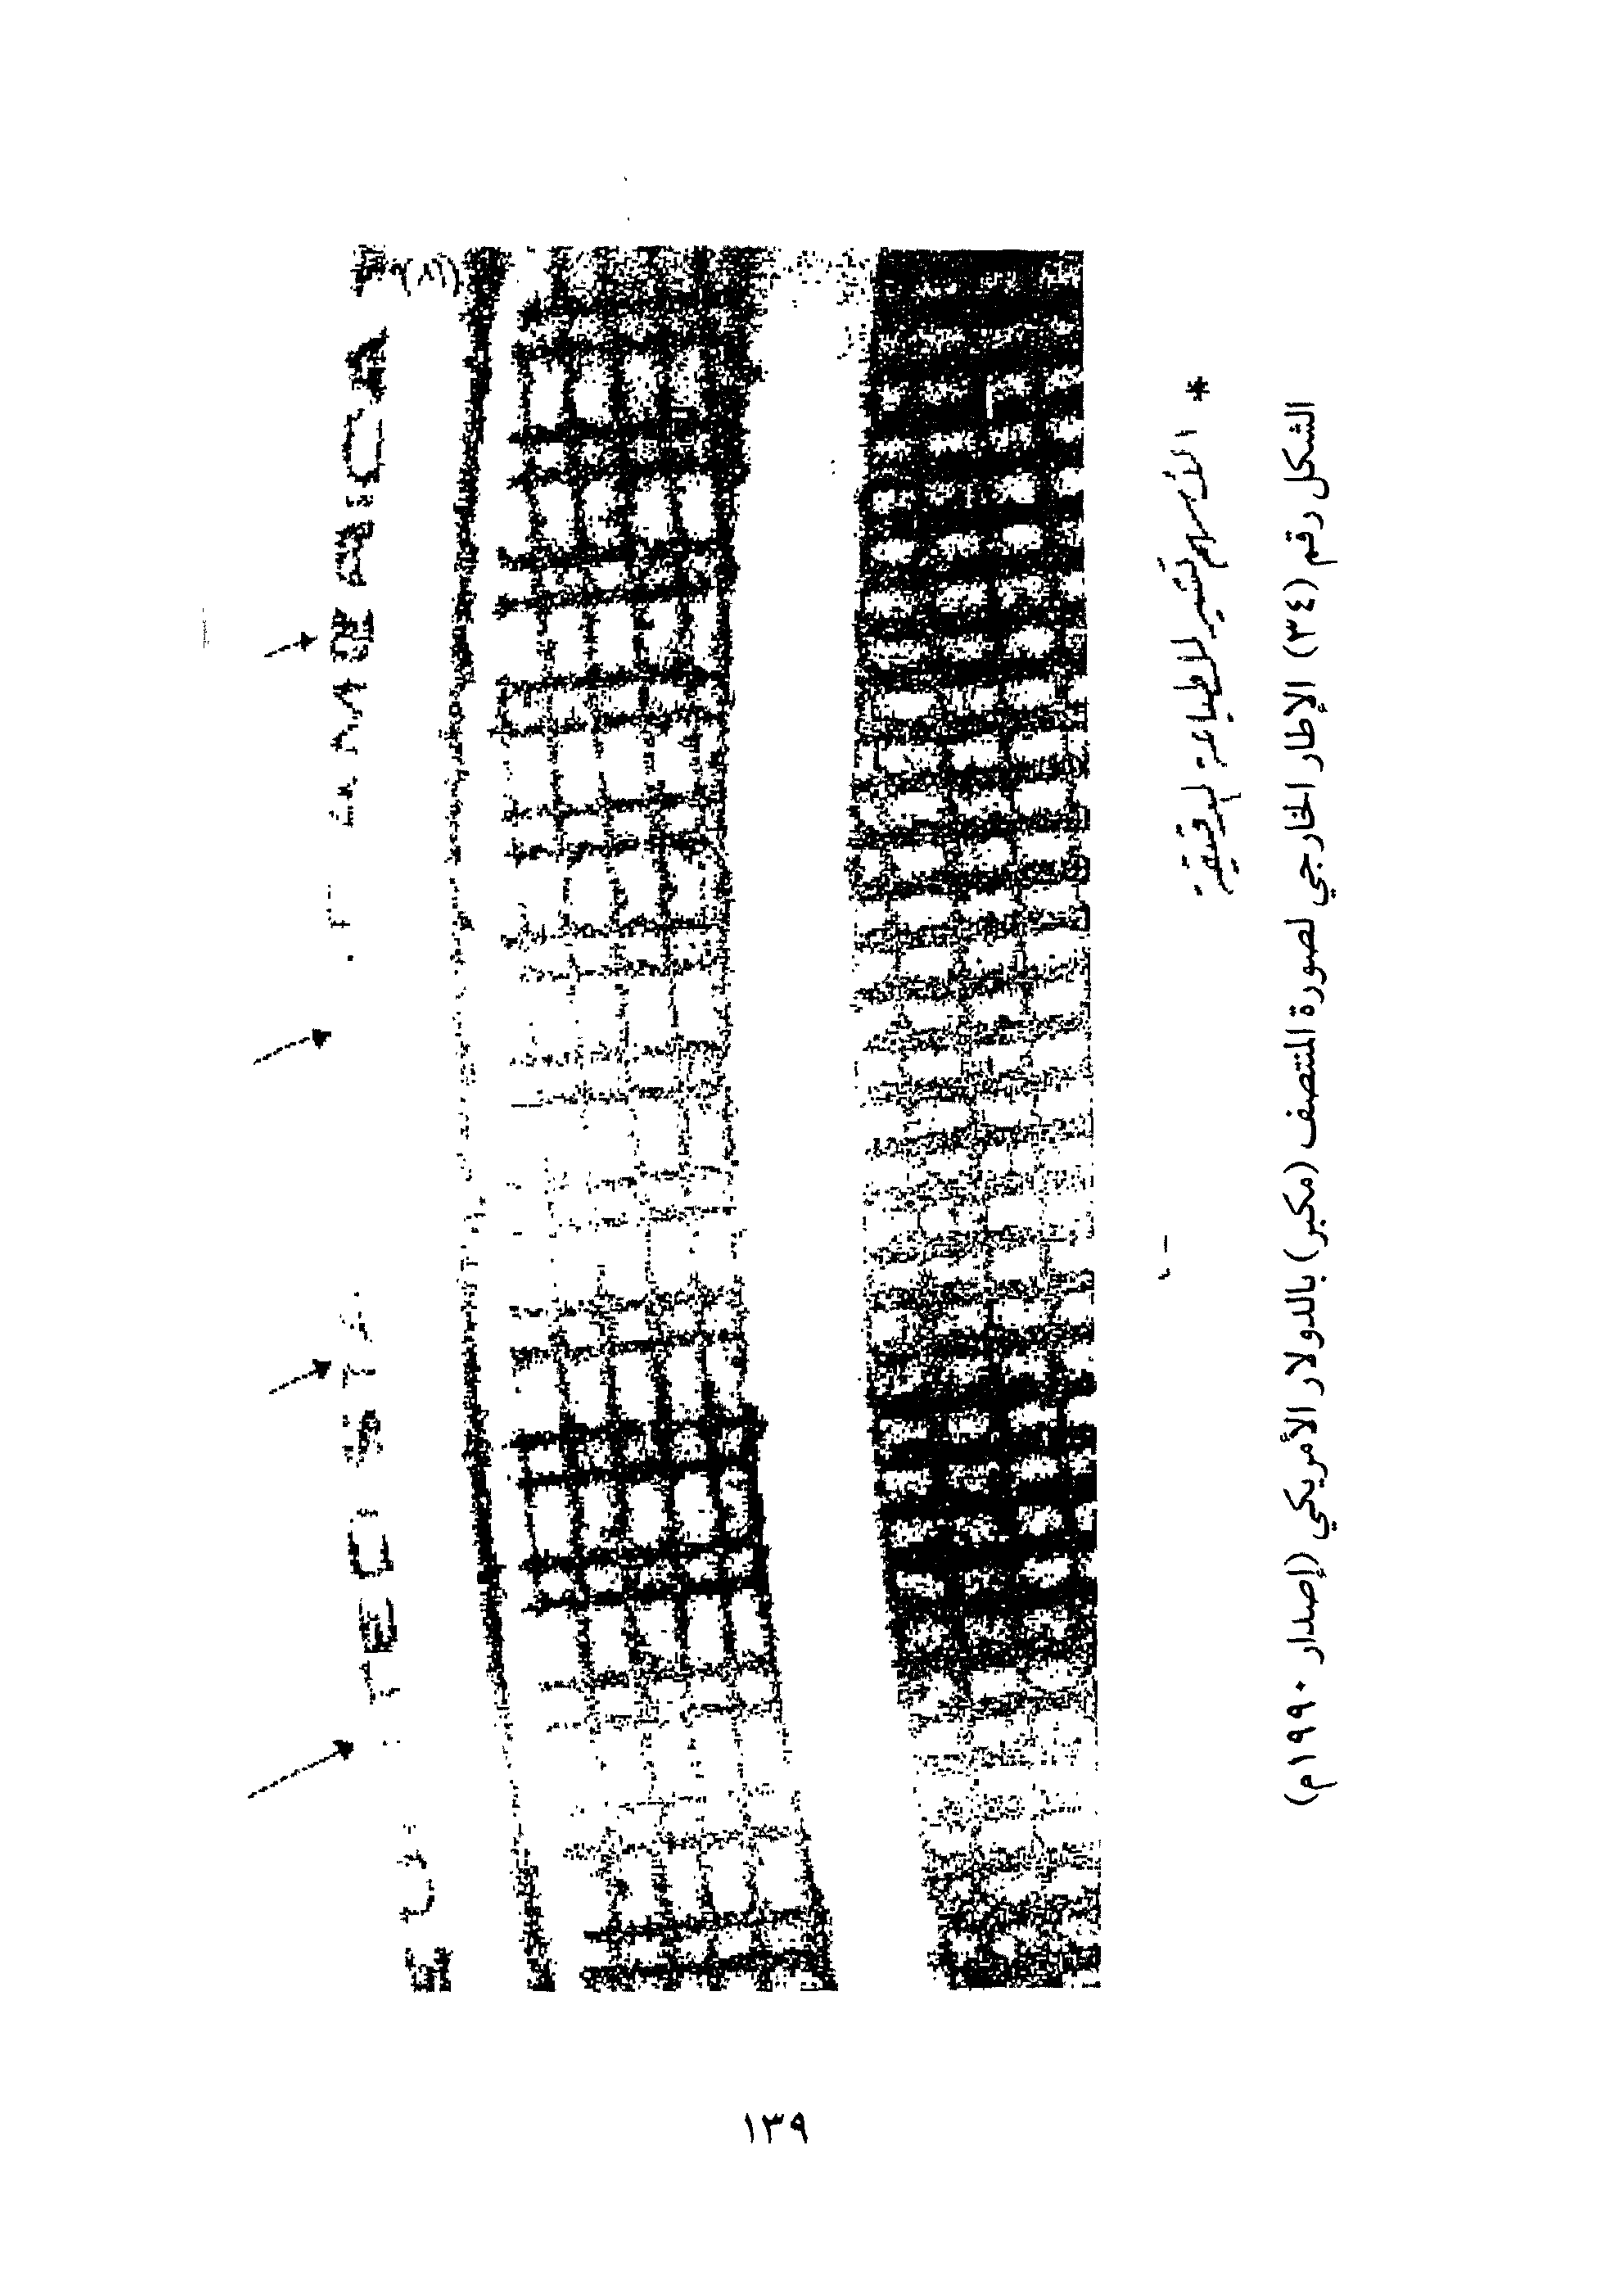 TED STA
AMERICA
* الأسهم تشير للطباعة الدقيقة
الشكل رقم (٣٤) الإطار الخارجي لصورة المنتصف (مكبر) بالدولار الأمريكي (إصدار ١٩٩٠م)
١٣٩